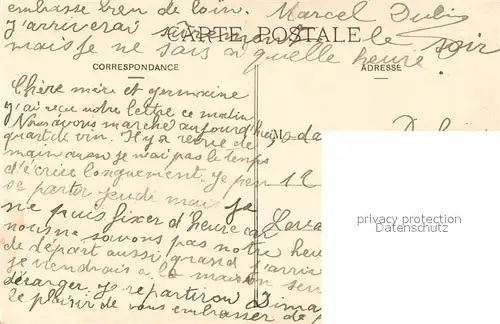 embrasse bien de loin. Marcel Dubis
J'arriverai le soir
mais je ne sais a quelle heure.
CARTE POSTALE
CORRESPONDANCE
ADRESSE
Chère mère et germaine
j'ai reçu votre lettre ce matin
Nous avons marché aujourd'hui
quart de vin. Il y a revue de
main aussi je n'ai pas le temps
d'écrire longuement. Je pen
se partir jeudi mais je
ne puis fixer d'heure car
nous ne savons pas notre heure
de départ aussi quand j'arrive
je viendrais a la maison sans
déranger. Je repartirou Dima
le plaisir de vous embrasser de
M
12
privacy protection
Datenschutz